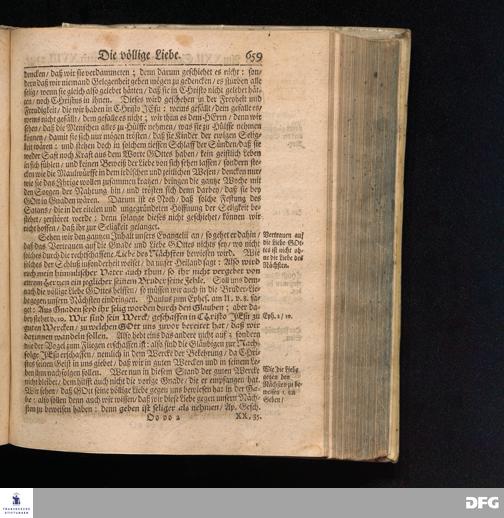 Die völlige Liebe. 659
dencken/ daß wir sie verdammeten; denn darum geschiehet es nicht: son-
dern daß wir niemand Gelegenheit geben mögen zu gedencken/ es stürben alle
selig/ wenn sie gleich also gelebet hätten/ daß sie in Christo nicht gelebet hät-
ten/ noch Christus in ihnen. Dieses wird geschehen in der Freyheit und
Freudigkeit/ die wir haben in Christo JEsu: wems gefällt/ dem gefalle es/
wems nicht gefällt/ dem gefalle es nicht; wir thun es dem HErrn/ denn wir
sehen/ daß die Menschen alles zu Hülffe nehmen/ was sie zu Hülffe nehmen
können/ damit sie sich nur mögen trösten/ daß sie Kinder der ewigen Selig-
keit wären; und stehen doch in solchem tieffen Schlaff der Sünden/ daß sie
weder Safft noch Krafft aus dem Worte GOttes haben/ kein geistlich Leben
in sich fühlen/ und keinen Beweiß der Liebe von sich sehen lassen/ sondern ste-
cken wie die Maulwürffe in dem irdischen und zeitlichen Wesen/ dencken nur/
wie sie das Ihrige wollen zusammen kratzen/ bringen die gantze Woche mit
den Sorgen der Nahrung hin/ und trösten sich denn darbey/ daß sie bey
GOtt in Gnaden wären. Darum ist es Noth/ daß solche Festung des
Satans/ die in der eitelen und ungegründeten Hoffnung der Seligkeit be-
stehet/ zerstöret werde; denn solange dieses nicht geschiehet/ können wir
nicht hoffen/ daß ihr zur Seligkeit gelanget.
Sehen wir den gantzen Inhalt unsers Evangelii an/ so gehet er dahin/
daß das Vertrauen auf die Gnade und Liebe GOttes nichts sey/ wo nicht
solches durch die rechtschaffene Liebe des Nächsten bewiesen wird. Wie
solches der Schluß insonderheit weiset/ da unser Heiland sagt: Also wird
euch mein himmlischer Vater auch thun/ so ihr nicht vergebet von
eurem Hertzen ein jeglicher seinem Bruder seine Fehle. Soll uns dem-
nach die völlige Liebe GOttes helffen/ so müssen wir auch in die Bruder-Lie-
be gegen unsern Nächsten eindringen. Paulus zum Ephes. am II. v. 8. sa-
get: Aus Gnaden seyd ihr selig worden durch den Glauben; aber da-
bey stehet v. 10. Wir sind sein Werck/ geschaffen in Christo JEsu zu
guten Wercken/ zu welchen GOtt uns zuvor bereitet hat/ daß wir
darinnen wandeln sollen.
folge JEsu erschaffen/ nemlich in dem Wercke der Bekehrung/ da Chri-
stus seinen Geist in uns giebet/ daß wir in guten Wercken und in seinem Le-
ben ihm nachfolgen sollen. Wer nun in diesem Stand der guten Wercke
nicht bleibet/ dem hilfft auch nicht die vorige Gnade/ die er empfangen hat.
Wir sehen/ daß GOtt seine völlige Liebe gegen uns bewiesen hat in der Ga-
be; also sollen denn auch wir wissen/ daß wir diese Liebe gegen unsern Näch-
sten zu beweisen haben; denn geben ist seliger als nehmen/ Ap. Gesch.
Oo oo 2 XX, 35.
Vertrauen auf
die Liebe GOt-
tes ist nicht oh-
ne die Liebe des
Nächsten.
Eph. 2/ 10.
Wie die Liebe
gegen den
Nächsten zu be-
weisen 1. im
Geben/
FRANCKESCHE
STIFTUNGEN
DFG